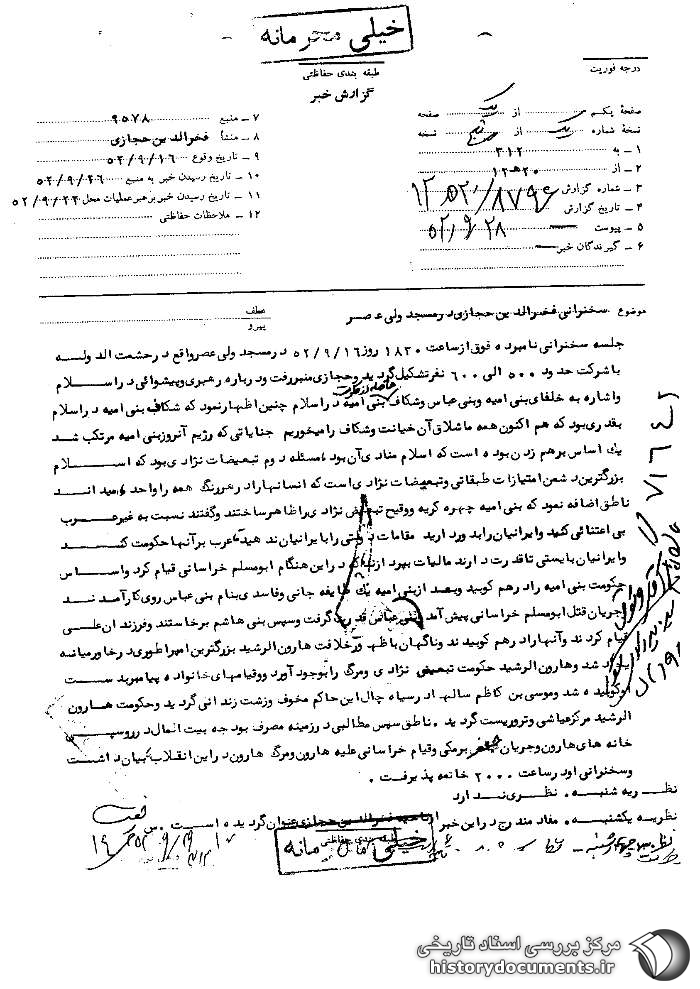 خیلی محرمانه
طبقه بندی حفاظتی
گزارش خبر
درجه فوریت
صفحهٔ یکم از یک صفحه
نسخهٔ شماره یک از پنج نسخه
۱ ـ به ۳۱۲
۲ ـ از ۲۰ هـ ۱۲
۳ ـ شماره گزارش
۴ ـ تاریخ گزارش ۵۲/۹/۲۸
۵ ـ پیوست
۶ ـ گیرندگان خبر
۷ ـ منبع ۹۵۷۸
۸ ـ منشأ فخرالدین حجازی
۹ ـ تاریخ وقوع ۵۲/۹/۱۶
۱۰ ـ تاریخ رسیدن خبر به منبع ۵۲/۹/۲۶
۱۱ ـ تاریخ رسیدن خبر برهبر عملیات محل ۵۲/۹/۲۲
۱۲ ـ ملاحظات حفاظتی
موضوع سخنرانی فخرالدین حجازی در مسجد ولی عصر
عطف
پیرو
جلسه سخنرانی نامبرده فوق از ساعت ۱۸۳۰ روز ۵۲/۹/۱۶ در مسجد ولی عصر واقع در حشمت الدوله
با شرکت حدود ۵۰۰ الی ۶۰۰ نفر تشکیل گردید و حجازی منبر رفت و درباره رهبری و پیشوائی در اسلام
و اشاره به خلفای بنی امیه و بنی عباس و شکاف بنی امیه در اسلام چنین اظهار نمود که شکاف بنی امیه در اسلام
بقدری بود که هم اکنون همه ما شلاق آن خیانت و شکاف را میخوریم جنایاتی که رژیم آنروز بنی امیه مرتکب شد
یک اساس برهم زدن بوده است که اسلام منادی آن بود، مسئله دوم تبعیضات نژادی بود که اسلام
بزرگترین دشمن امتیازات طبقاتی و تبعیضات نژادی است که انسانها را در هر رنگ همه را واحد میداند
ناطق اضافه نمود که بنی امیه چهره کریه و وقیح تبعیض نژادی را ظاهر ساختند و گفتند نسبت به غیر عرب
بی اعتنائی کنید و ایرانیان را بد ورد ارید مقامات دولتی را بایرانیان ندهید، عرب برآنها حکومت کند
و ایرانیان بایستی تا قدرت دارند مالیات بپردازند که در این هنگام ابومسلم خراسانی قیام کرد و اساس
حکومت بنی امیه را درهم کوبید و بعد از بنی امیه یک طایفه جانی و فاسدی بنام بنی عباس روی کار آمدند
و جریان قتل ابومسلم خراسانی پیش آمد بنی عباس قدرت گرفت و سپس بنی هاشم برخاستند و فرزندان علی
قیام کردند و آنها را درهم کوبیدند و ناگهان با ظهور خلافت هارون الرشید بزرگترین امپراطوری در خاورمیانه
شد و هارون الرشید حکومت تبعیض نژادی و مرگ را بوجود آورد و قیامهای خانواده پیامبر بدست
او کوبیده شد و موسی بن کاظم سالها در سیاه چال این حاکم مخوف و زشت زندانی گردید و حکومت هارون
الرشید مرکز عیاشی و تروریست گردید. ناطق سپس مطالبی در زمینه مصرف بودجه بیت المال در روسپی
خانه های هارون و جریان جعفر برمکی و قیام خراسانی علیه هارون و مرگ هارون در این انقلاب بیان داشت
و سخنرانی او در ساعت ۲۰۰۰ خاتمه پذیرفت.
نظریه شنبه. نظری ندارد
نظریه یکشنبه. مفاد مندرج در این خبر از ناحیه فخرالدین حجازی عنوان گردیده است. س
طبقه بندی حفاظتی
خیلی محرمانه
مرکز بررسی اسناد تاریخی
historydocuments.ir